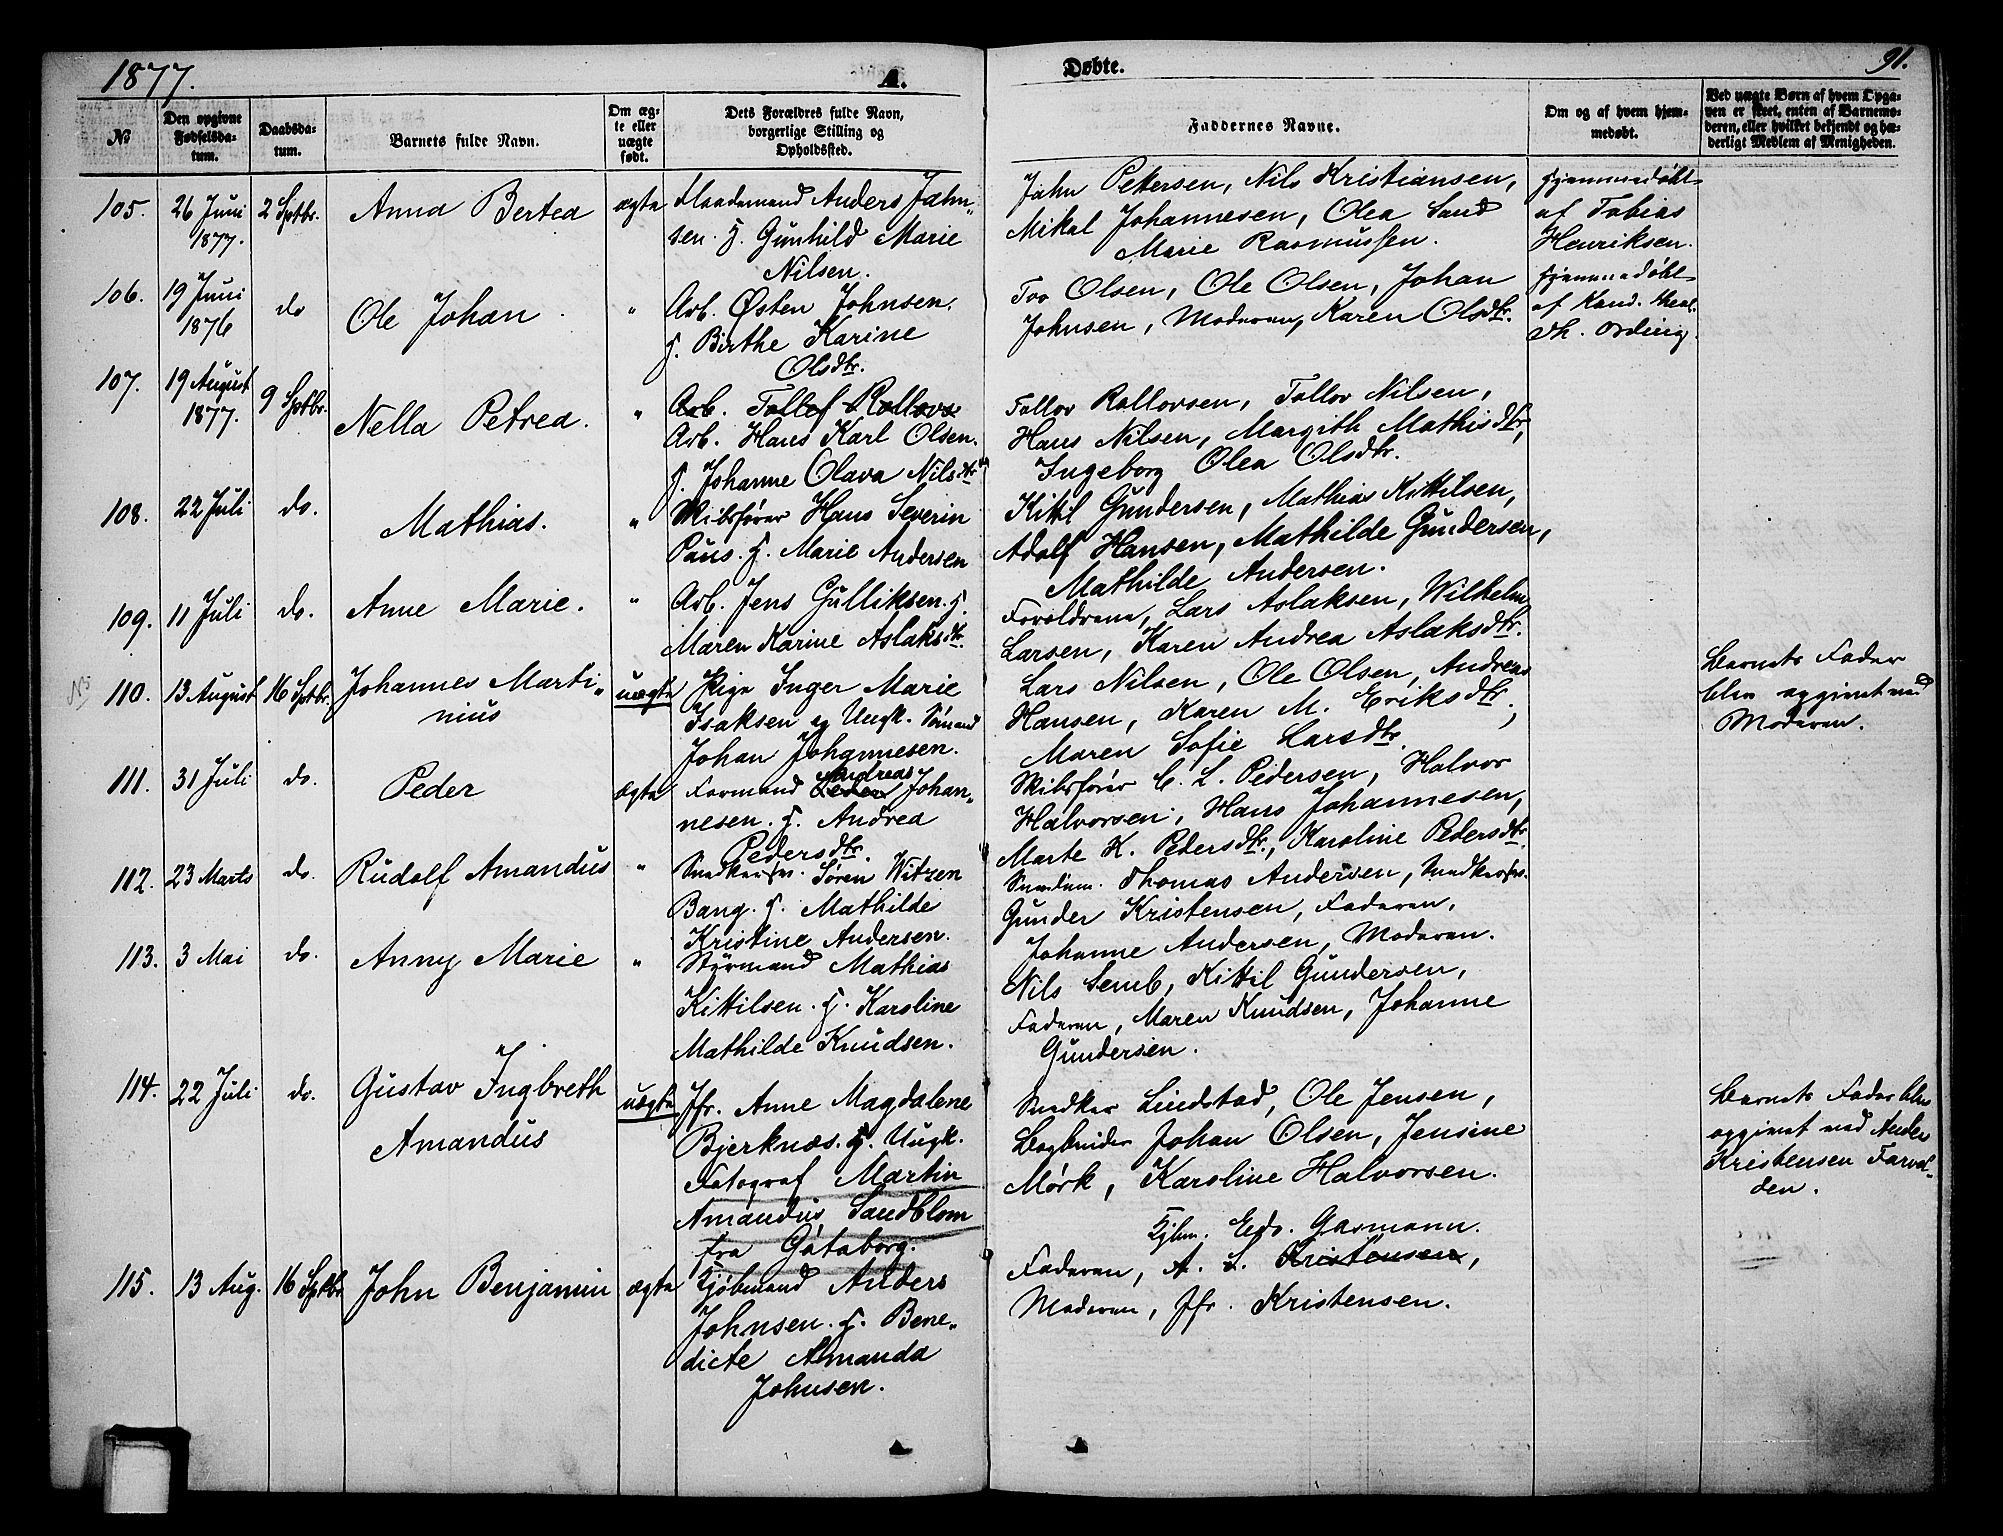 1877.
A.
Døbte.
91.
№
Den opgivne
Fødselsda-
tum.
Daabsda-
tum.
Barnets fulde Navn.
Om æg-
te eller
uægte
født.
Dets Forældres fulde Navn,
borgerlige Stilling og
Opholdssted.
Faddernes Navne.
Om og af hvem hjem-
medøbt.
Ved uægte Børn af hvem Opga-
ven er skeet, enten af Barnemo-
deren, eller hvilket bekjendt og hæ-
derligt Medlem af Menigheden.
105.
26 Juni
1877.
2 Sptbr.
Anna Bertea
ægte
Maademand Anders John„
sen. H. Gunhild Marie
Nilsen.
John Pettersen, Nils Kristiansen,
Mikal Johannesen, Olea Sand
Marie Rasmussen.
Hjemmedøbt
af Tobias
Henriksen.
106.
19 Juni
1876
do
Ole Johan
"
Arb. Østen Johnsen.
H. Birthe Karine
Olsdtr.
Tov Olsen, Ole Olsen, Johan
Johnsen, Moderen, Karen Olsdtr.
Hjemmedøbt
af Kand. theol.
Th. Ording.
107.
19 August
1877.
9 Sptbr.
Nella Petrea.
"
Arb. Tollef Rollovs
Arb. Hans Karl Olsen.
H. Johanne Olava Nilsdtr
Tollov Rollovsen, Tollov Nilsen,
Hans Nilsen, Margith Mathisdtr,
Ingeborg Olea Olsdtr.
108.
22 Juli
do.
Mathias.
"
Skibsfører Hans Severin
Paus. H. Marie Andersen
Kittil Gundersen, Mathias Kittilsen,
Adolf Hansen, Mathilde Gundersen,
Mathilde Andersen.
109.
11 Juli
do.
Anne Marie.
"
Arb. Jens Gulliksen. H.
Maren Karine Aslaksdtr.
Forældrene, Lars Aslaksen, Wilhelm
Larsen, Karen Andrea Aslaksdtr.
110.
13 August
16 Sptbr.
Johannes Marti„
nius
uægte
Pige Inger Marie
Isaksen og Ungk. Sømand
Johan Johannesen.
Lars Nilsen, Ole Olsen, Andreas
Hansen, Karen M. Eriksdtr,
Maren Sofie Larsdtr.
Barnets Fader
blev opgivet ved
Moderen.
111.
31 Juli
do.
Peder
ægte
Andreas
Formand Peder Johan„
nesen. H. Andrea
Pedersdtr.
Skibsfører C. L. Pedersen, Halvor
Halvorsen, Hans Johannesen,
Marte K. Pedersdtr, Karoline Pedersdtr.
112.
23 Marts
do.
Rudolf Amandus
"
Snedkersv. Søren Witzen
Bang. H. Mathilde
Kristine Andersen.
Thomas Andersen, Snedkersv.
Gunder Kristensen, Faderen,
Johanne Andersen, Moderen.
113.
3 Mai
do.
Anny Marie
"
Styrmand Mathias
Kittilsen. H. Karoline
Mathilde Knudsen.
Nils Semb, Kittil Gundersen,
Faderen, Maren Knudsen, Johanne
Gundersen.
114.
22 Juli
do.
Gustav Ingbreth
Amandus
uægte
Jfr. Anne Magdalene
Bjerknæs. H. Ungk.
Fotograf Martin
Amandus Sandblom
fra Gøtaborg.
Snedker Lindstad, Ole Jensen,
Bogbinder Johan Olsen, Jensine
Mørk, Karoline Halvorsen.
Barnets Fader blev
opgivet ved Anders
Kristensen Farvel-
den.
115.
13 Aug.
16 Sptbr.
John Benjamin
ægte
Kjøbmand Anders
Johnsen. H. Bene„
dicte Amanda
Johnsen.
Kjbm. Edv. Gasmann.
Faderen, A. L. Kristensen,
Moderen, Jfr. Kristensen.